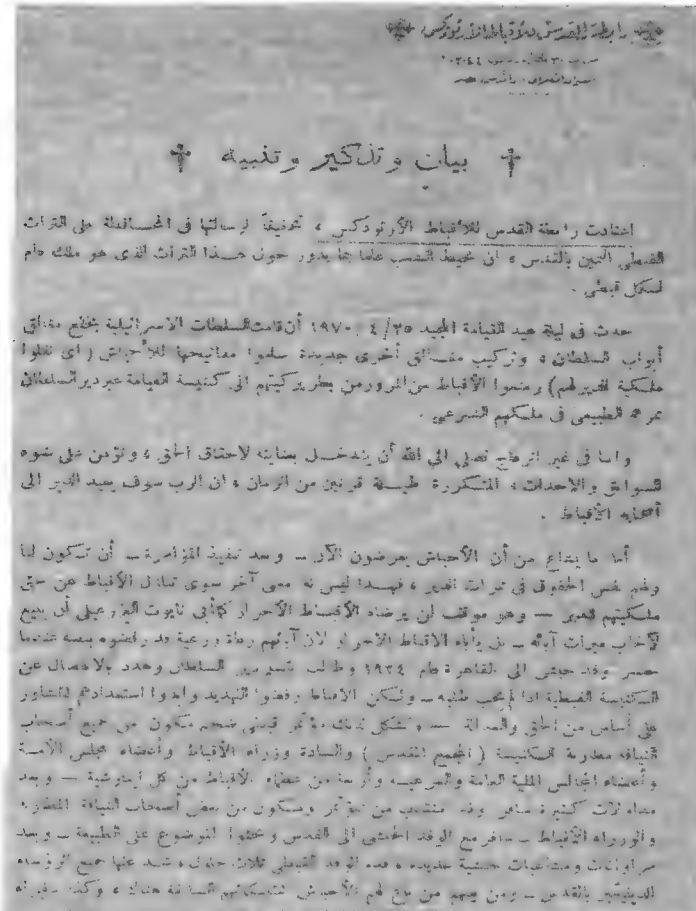 رابطة القدس للأقباط الأرثوذكس
بيان وتذكير وتنبيه
اعتادت رابطة القدس للأقباط الأرثوذكس ، تحقيقاً لرسالتها فى المحافظة على التراث
القبطى الثمين بالقدس ، ان تحيط الشعب علما بما يدور حول هذا التراث الذى هو ملك عام
لكل قبطى .
حدث فى ليلة عيد القيامة المجيد ٢٥/ ٤ /١٩٧٠ أن قامت السلطات الاسرائيلية بخلع مغالق
أبواب السلطان ، وتركيب مغالق أخرى جديدة سلموا مفاتيحها للأحباش ( اى نقلوا
ملكية الدير لهم ) ومنعوا الأقباط من المرور من بطريركيتهم الى كنيسة القيامة عبر دير السلطان
ممرهم الطبيعى فى ملكهم الشرعى .
وانا فى غير انزعاج نصلى الى الله أن يتدخل بعنايته لاحقاق الحق ، ونؤمن على ضوء
السوابق والاحداث ، المتكررة طيلة قرنين من الزمان ، ان الرب سوف يعيد الدير الى
أصحابه الأقباط .
أما ما يشاع من أن الأحباش يعرضون الآن ــ وبعد تنفيذ المؤامرة ــ أن تكون لنا
ولهم نفس الحقوق فى ممرات الدير ، فهذا ليس له معنى آخر سوى تنازل الأقباط عن حق
ملكيتهم للدير — وهو موقف لن يرضاه الأقباط الأحرار كما أبى نابوت اليزرعيلى أن يبيع
لآخاب ميراث آبائه ــ بل يأباه الاقباط الاحرار لان آبائهم رعاة ورعية قد رفضوه بنفسه عندما
حضر وفد حبشى الى القاهرة عام ١٩٢٤ وطالب بتسليم دير السلطان وهدد بالانفصال عن
الكنيسة القبطية اذا لم يجب طلبه ــ ولكن الاقباط رفضوا التهديد وابدوا استعدادهم للتشاور
على أساس من الحق والعدالة ــ وتشكل لذلك مؤتمر قبطى ضخم مكون من جميع أصحاب
النيافة مطارنة الكنيسة ( المجمع المقدس ) والسادة وزراء الأقباط وأعضاء مجلس الأمة
وأعضاء المجالس الملية العامة والفرعية وأربعة من عظماء الأقباط من كل ايبارشية — وبعد
مداولات كثيرة سافر وفد منتخب من المؤتمر ومكون من بعض أصحاب النيافة المطارنة
والوزراء الأقباط ــ سافر مع الوفد الحبشى الى القدس وبحثوا الموضوع على الطبيعة ــ وبعد
مداولات ومشاحنات حبشية عديدة ، قدم الوفد القبطى ثلاث حلول ، شهد عنها جميع الرؤساء
الدينيين بالقدس ــ ومن بينهم من باع لهم الأحباش ممتلكاتهم السابقة هناك ، وكذا سفراء